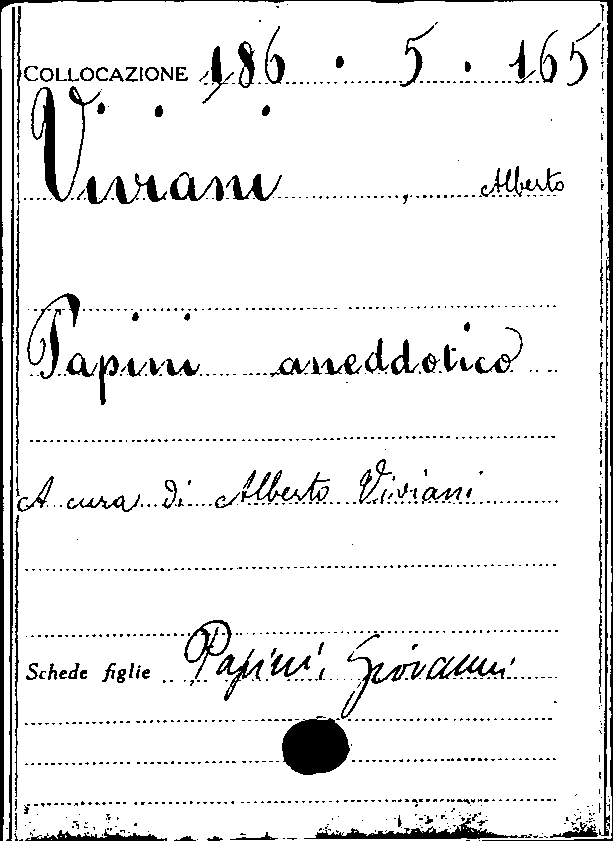 COLLOCAZIONE 186 . 5 . 165
Viviani, Alberto
Papini aneddotico
A cura di Alberto Viviani
Schede figlie Papini, Giovanni